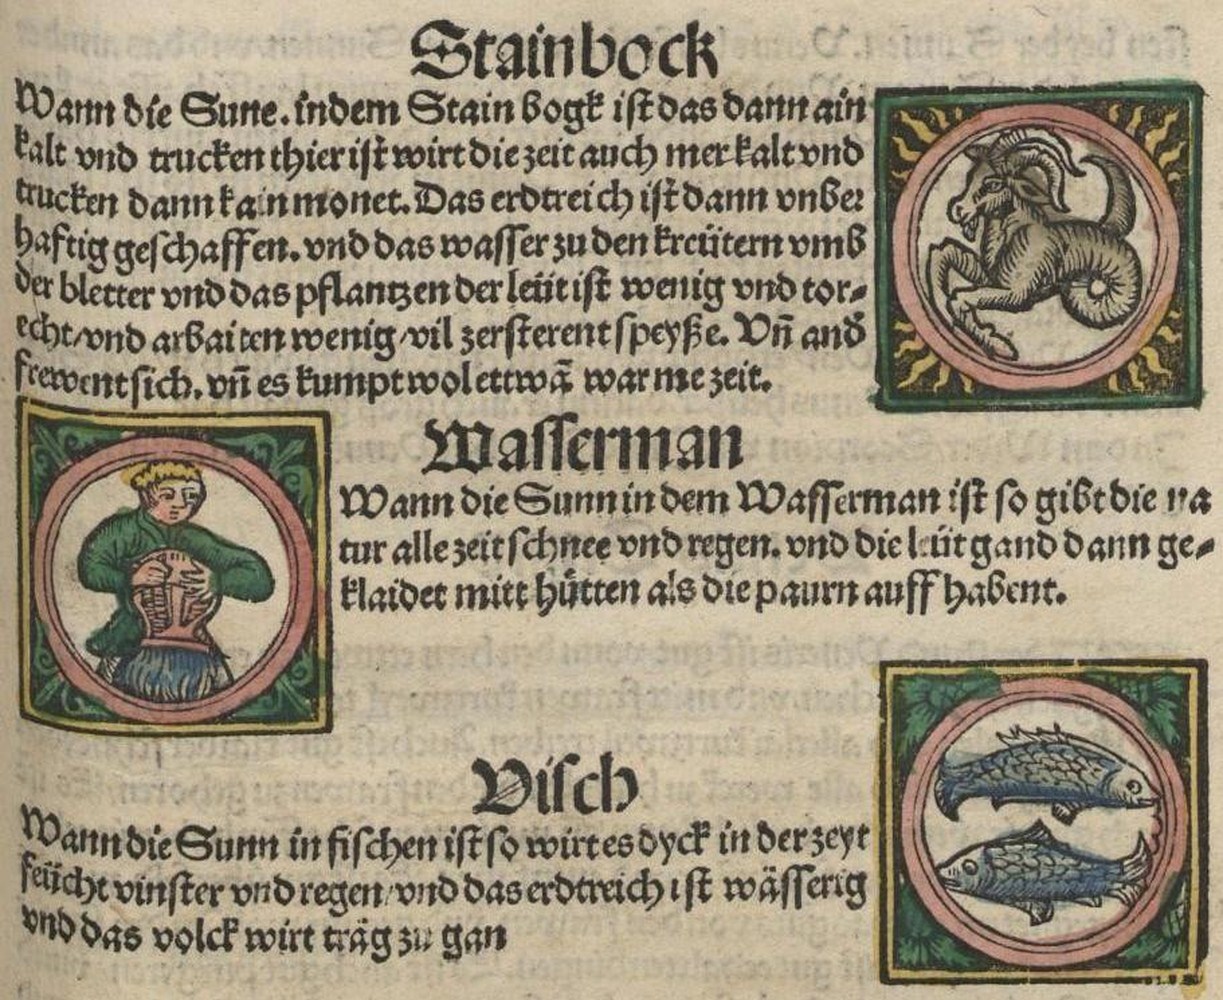 Stainbock
Wann die Sune. indem Stain bogk ist das dann ain
kalt vnd trucken thier ist wirt die zeit auch mer kalt vnd
trucken dann kain monet. Das erdtreich ist dann vnber
haftig geschaffen. vnd das wasser zu den kreütern vmb
der bletter vnd das pflantzen der leüt ist wenig vnd tor⸗
echt/vnd arbaiten wenig/vil zersterent speyße. Vñ and̄
frewent sich. vñ es kumpt wol ettwā warme zeit.
Wasserman
Wann die Sunn in dem Wasserman ist so gibt die na
tur alle zeit schnee vnd regen. vnd die leüt gand dann ge⸗
klaidet mitt hütten als die paurn auff habent.
Visch
Wann die Sunn in fischen ist so wirt es dyck in der zeyt
feücht vinster vnd regen/vnd das erdtreich ist wässerig
vnd das volck wirt träg zu gan